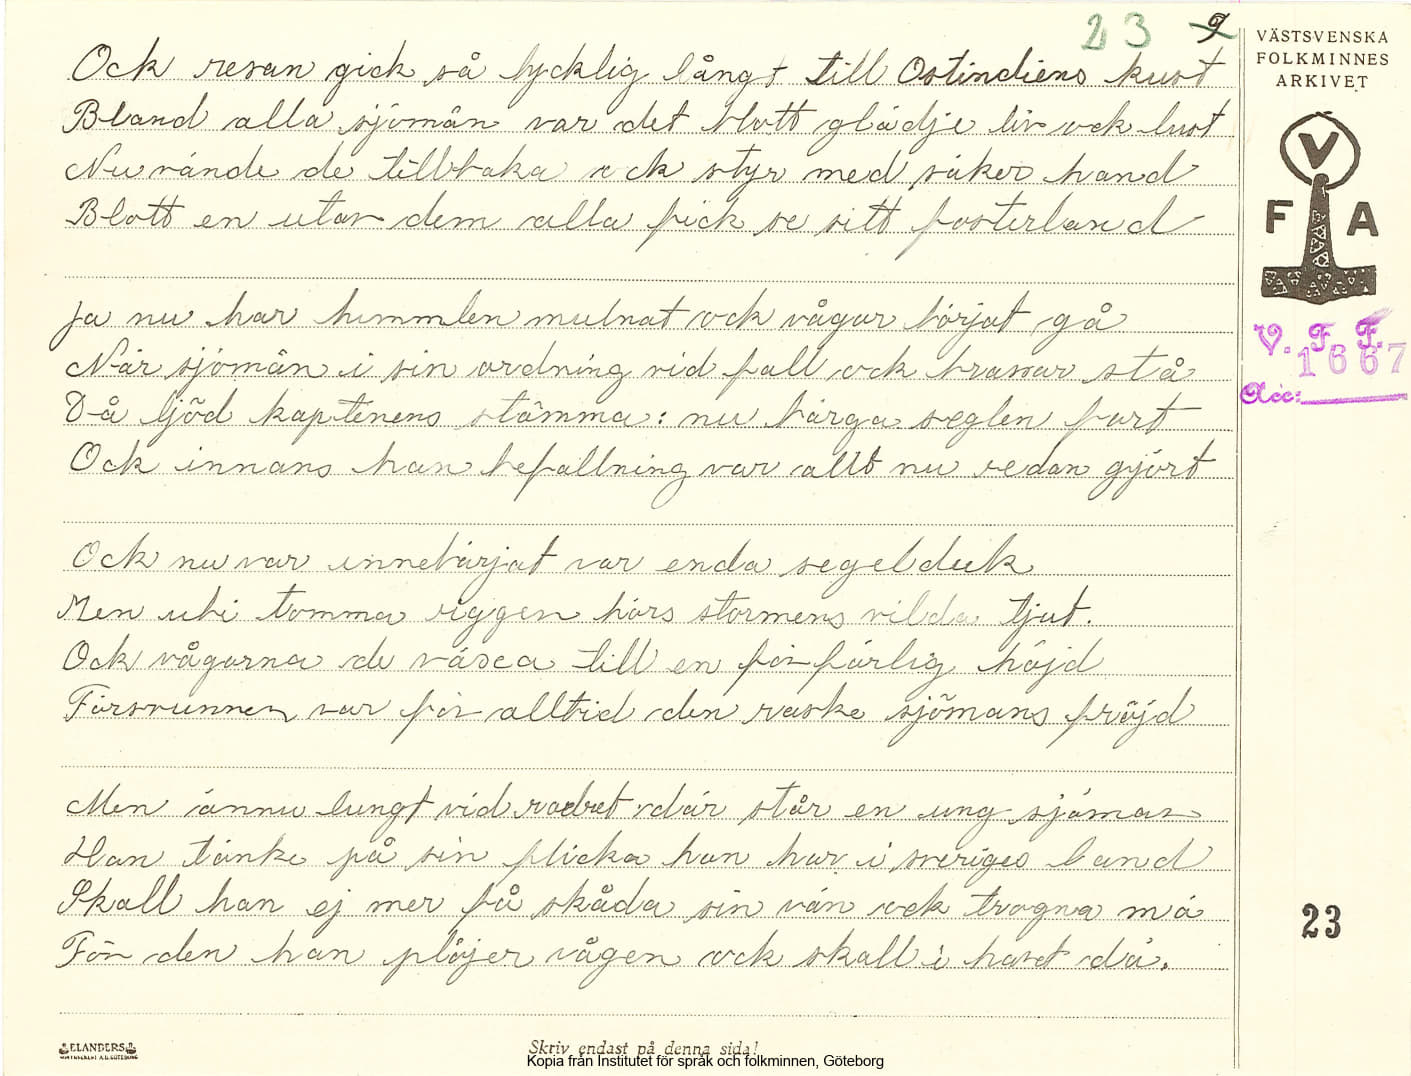 23
VÄSTSVENSKA
FOLKMINNES
ARKIVET
V
F A
V. F. F.
1667
Acc:
Ock resan gick så lycklig långt till Ostindiens kust
Bland alla sjömän var det blott glädje liv ock lust
Nu vände de tillbaka ock styr med säker hand
Blott en utav dem alla fick se sitt fosterland
Ja nu har himmlen mulnat ock vågar börjat gå
När sjömän i sin ordning vid fall ock brassar stå
Då ljöd kaptenens stämma: nu bärga seglen fort
Ock innans han befallning var allt nu redan gjört
Ock nu var innebärjat var enda segelduk
Men uti tomma riggen hörs stormens vilda tjut.
Ock vågarna de växa till en förfärlig höjd
Försvunnen var för alltid den raske sjömans fröjd
Men ännu lungt vid rodret där står en ung sjöman
Han tänke på sin flicka han har i sveriges land
Skall han ej mer få skåda sin vän ock trogna mö
För den han plöjer vågen ock skall i havet dö.
23
ELANDERS
Skriv endast på denna sida!
Kopia från Institutet för språk och folkminnen, Göteborg